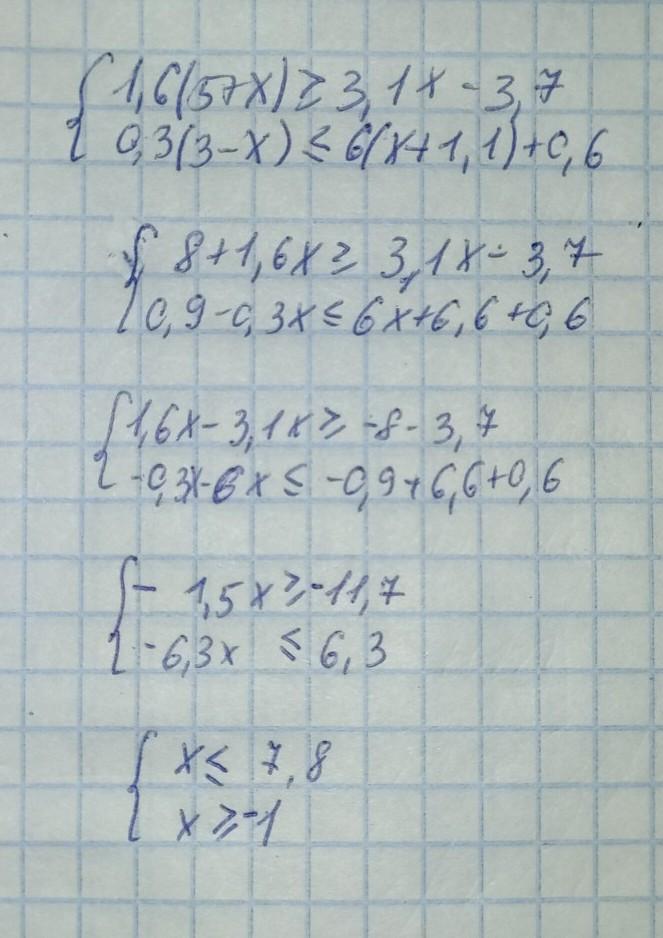 { 1,6(5+x) ≥ 3,1x - 3,7
0,3(3-x) ≤ 6(x+1,1)+0,6
{ 8+1,6x ≥ 3,1x - 3,7
0,9-0,3x ≤ 6x+6,6+0,6
{ 1,6x - 3,1x ≥ -8 - 3,7
-0,3x-6x ≤ -0,9+6,6+0,6
{ - 1,5x ≥ -11,7
-6,3x ≤ 6,3
{ x ≤ 7,8
x ≥ -1